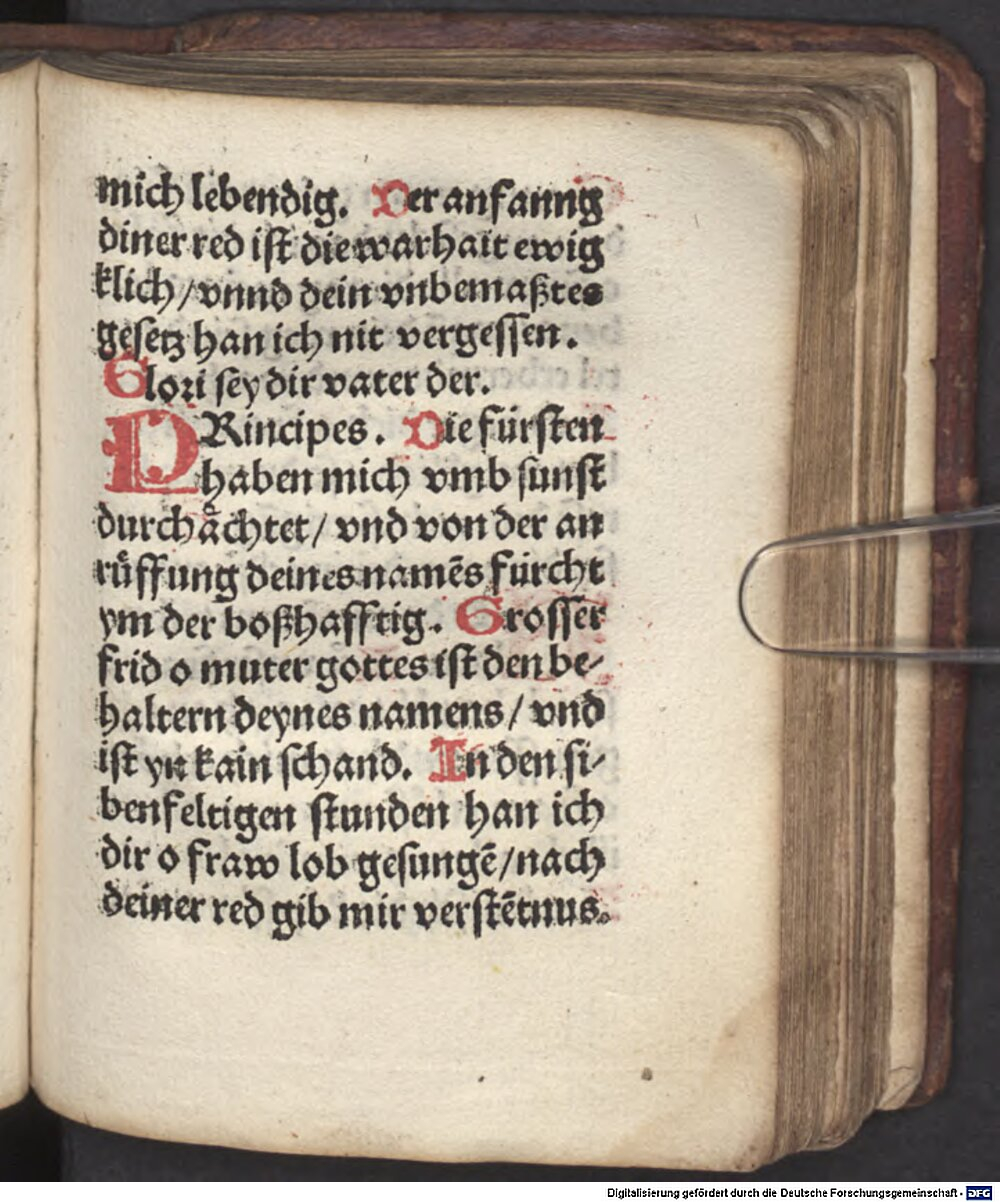 mich lebendig. Der anfanng
diner red iſt die warhait ewig
klich/ vnnd dein vnbemaßtes
geſetz han ich nit vergeſſen.
Glori ſey dir vater der.
PRincipes. Die fürſten
haben mich vmb ſunſt
durchaͤchtet/ vnd von der an
ruͤffung deines namēs fürcht
ym der boßhafftig. Groſſer
frid o muter gottes iſt den be⸗
haltern deynes namens/ vnd
iſt yn kain ſchand. In den ſi⸗
benfeltigen ſtunden han ich
dir o fraw lob geſungē/nach
deiner red gib mir verſtētnus.
Digitalisierung gefördert durch die Deutsche Forschungsgemeinschaft - DFG